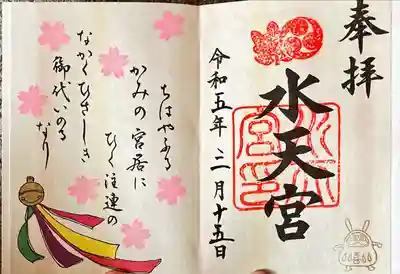 奉拝
水天宮
水天宮印
令和五年 三月十五日
ちはやふる
かみの宮居に
ひく注連の
なかくひさしき
御代いのる
なり